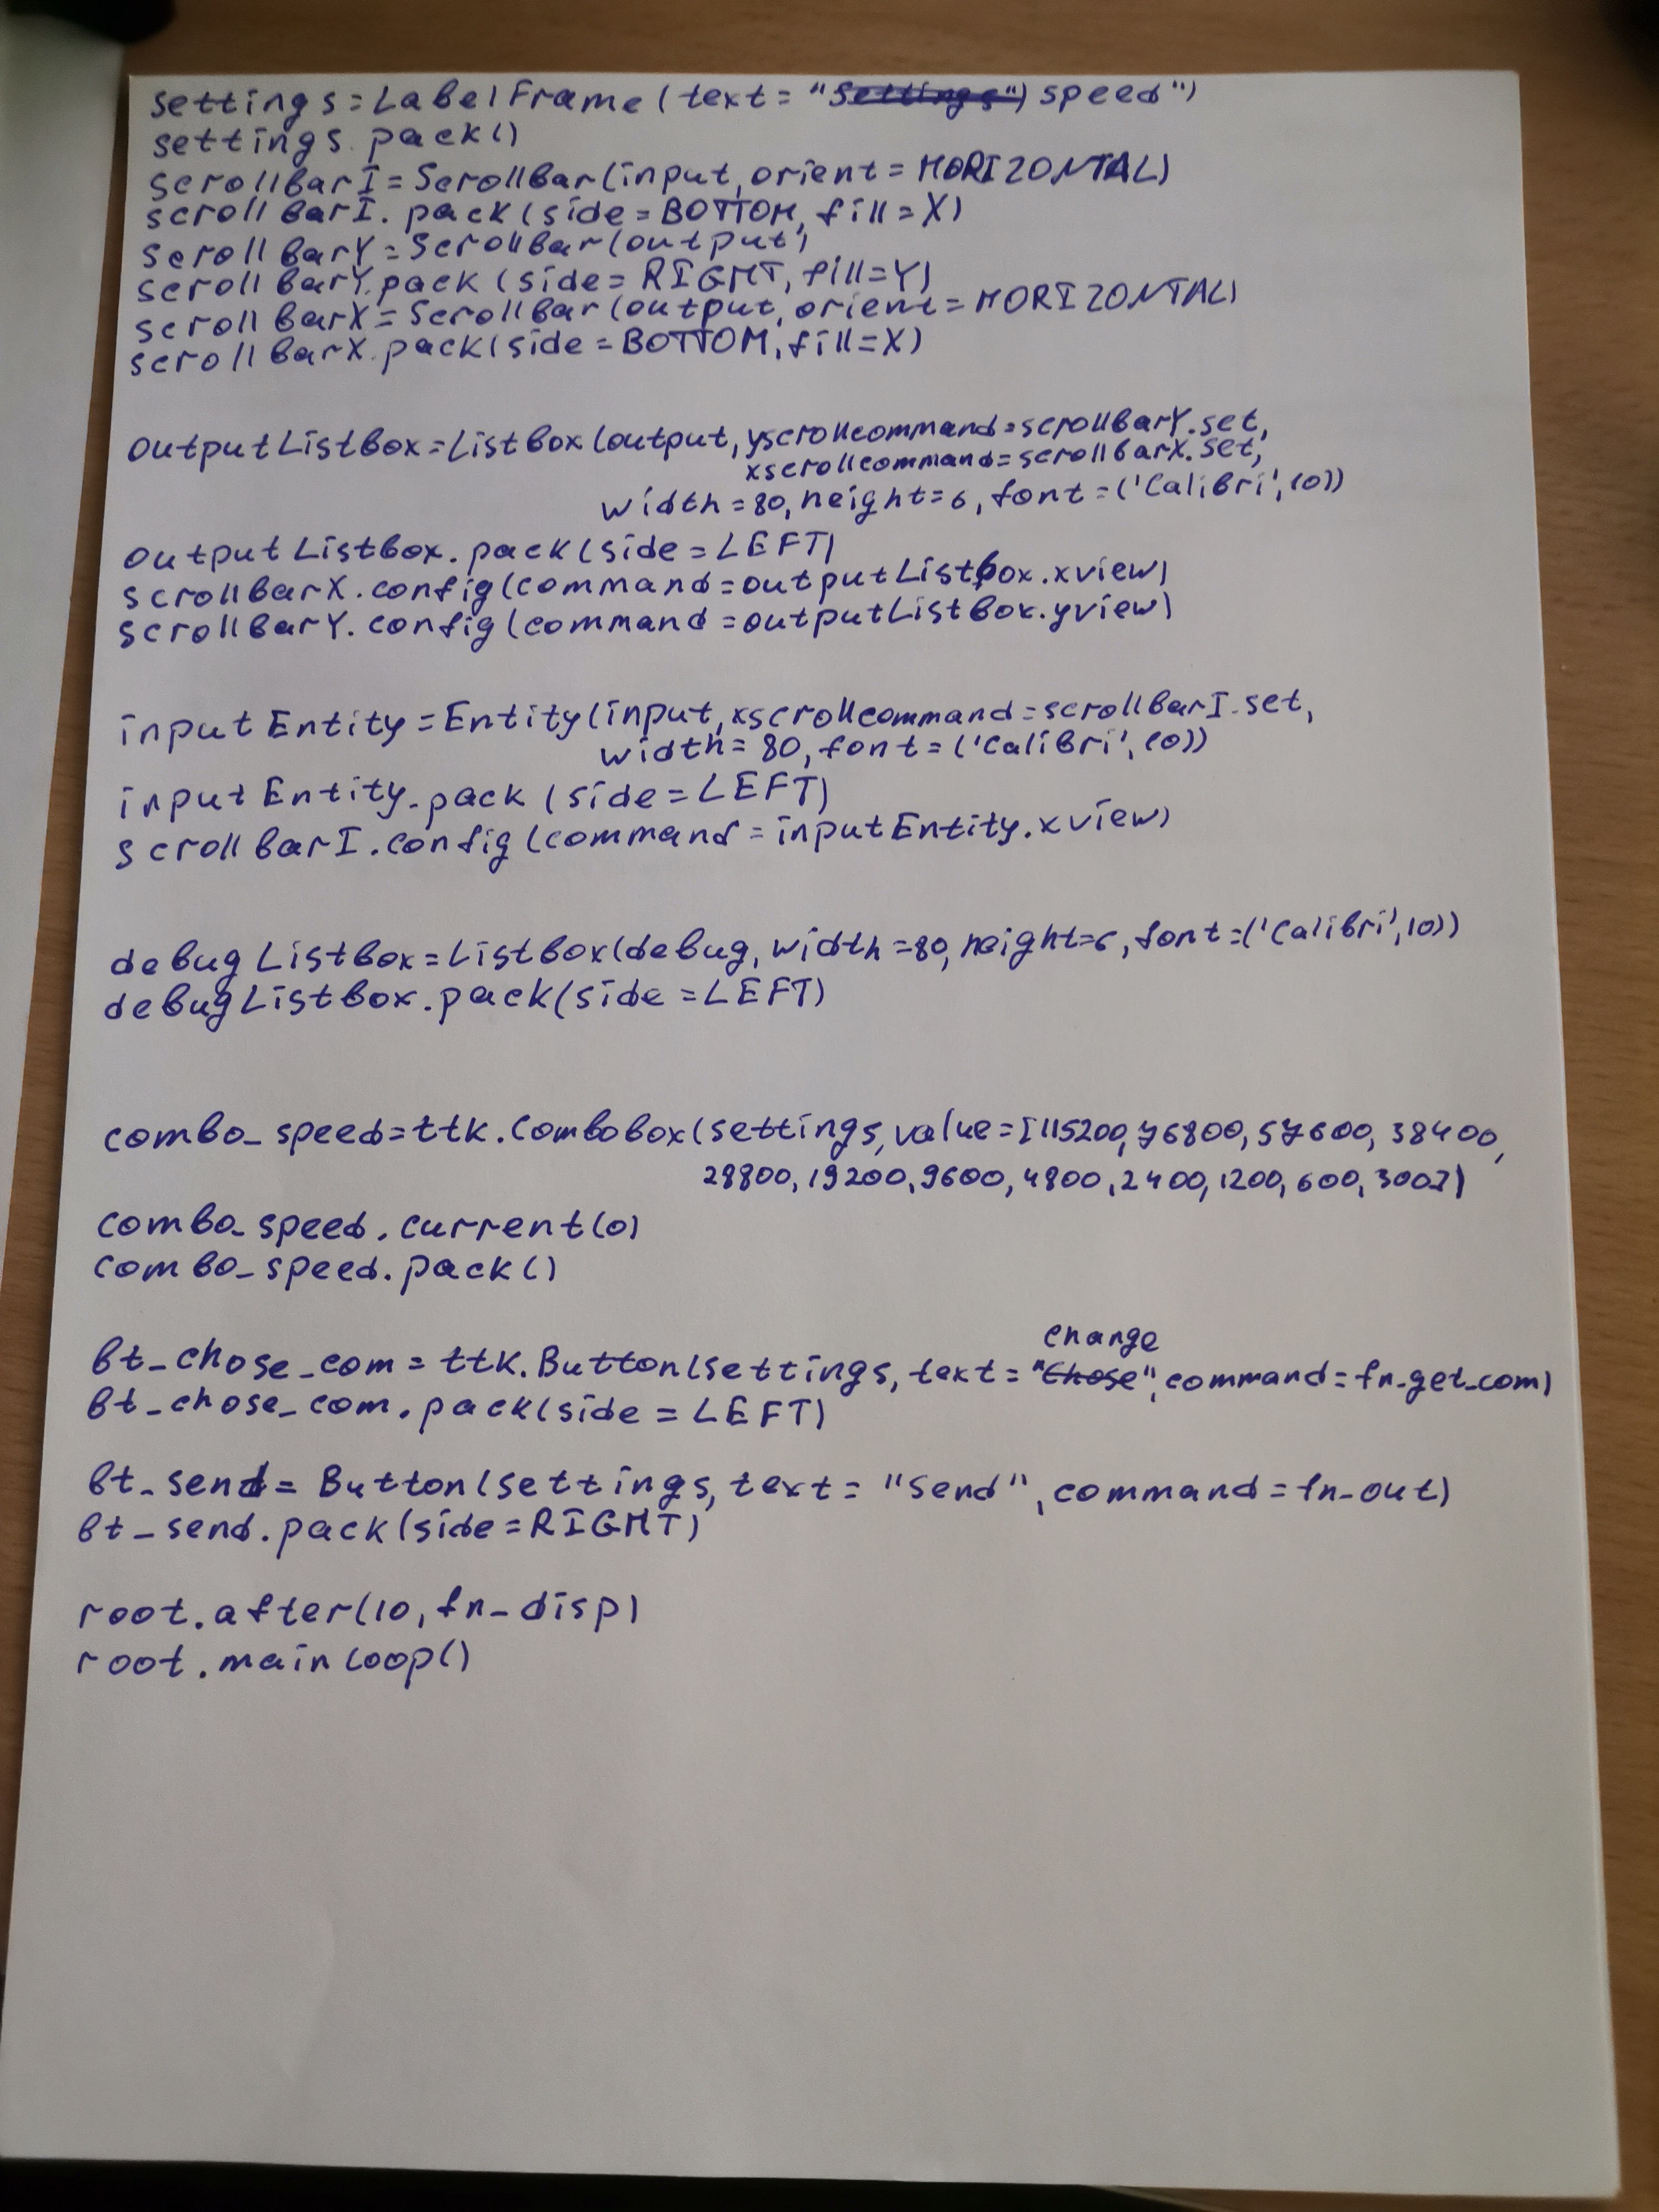 settings=LabelFrame(text="speed")
settings.pack()
scrollbarI=Scrollbar(input,orient=HORIZONTAL)
scrollbarI.pack(side=BOTTOM,fill=X)
scrollbarY=Scrollbar(output)
scrollbarY.pack(side=RIGHT,fill=Y)
scrollbarX=Scrollbar(output,orient=HORIZONTAL)
scrollbarX.pack(side=BOTTOM,fill=X)
outputListbox=Listbox(output,yscrollcommand=scrollbarY.set,
xscrollcommand=scrollbarX.set,
width=80,height=6,font=('Calibri',10))
outputListbox.pack(side=LEFT)
scrollbarX.config(command=outputListbox.xview)
scrollbarY.config(command=outputListbox.yview)
inputEntity=Entity(input,xscrollcommand=scrollbarI.set,
width=80,font=('Calibri',10))
inputEntity.pack(side=LEFT)
scrollbarI.config(command=inputEntity.xview)
debugListbox=Listbox(debug,width=80,height=6,font=('Calibri',10))
debugListbox.pack(side=LEFT)
combo_speed=ttk.Combobox(settings,value=[115200,76800,57600,38400,
28800,19200,9600,4800,2400,1200,600,300])
combo_speed.current(0)
combo_speed.pack()
change
bt_chose_com=ttk.Button(settings,text="Chose",command=fn_get_com)
bt_chose_com.pack(side=LEFT)
bt_send=Button(settings,text="Send",command=fn_out)
bt_send.pack(side=RIGHT)
root.after(10,fn_disp)
root.mainloop()